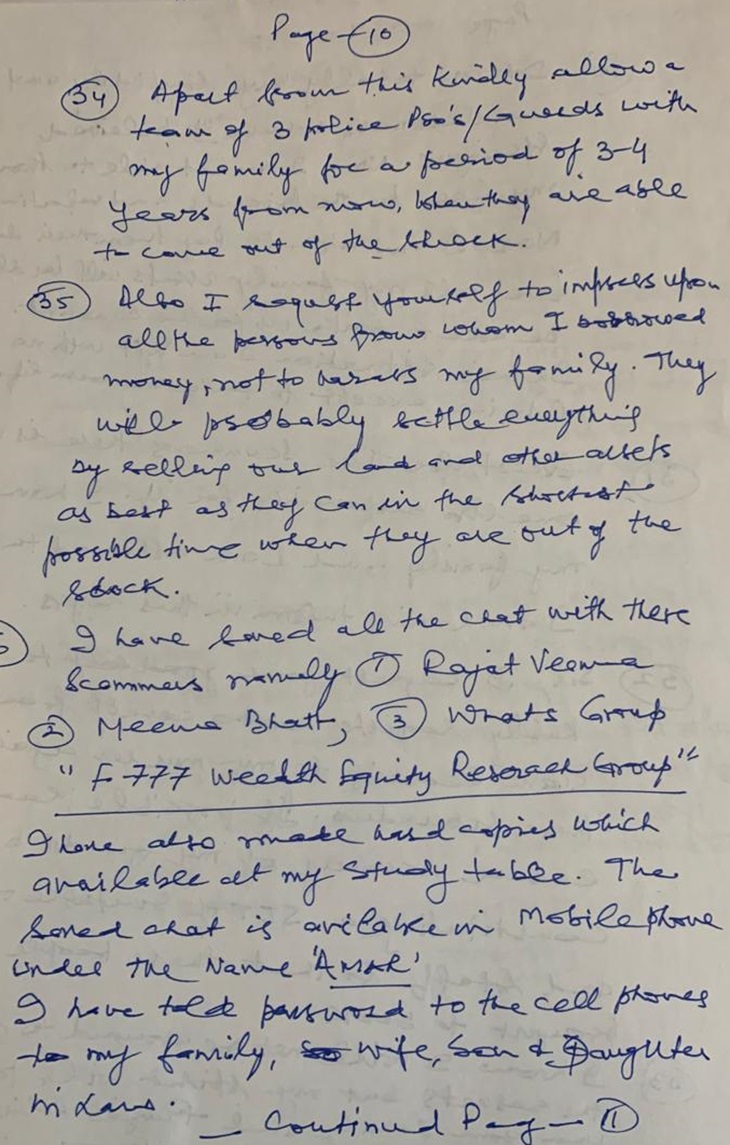 Page - 10
34 Apart from this Kindly allow a
team of 3 police Pso's/Guards with
my family for a period of 3-4
years from now, when they are able
to come out of the shock.
35 Also I request yourself to impress upon
all the persons from whom I borrowed
money, not to harass my family. They
will probably settle everything
by selling our land and other assets
as best as they can in the shortest
possible time when they are out of the
shock.
I have saved all the chat with there
Scammers namely ① Rajat Verma
② Meena Bhatt, ③ Whats Group
"F-777 Wealth Equity Research Group"
I have also made hard copies which
available at my Study table. The
saved chat is avilable in Mobile phone
under the Name 'AMAR'
I have told password to the cell phones
to my family, wife, Son & Daughter
in Law.
- Continued Page - 11